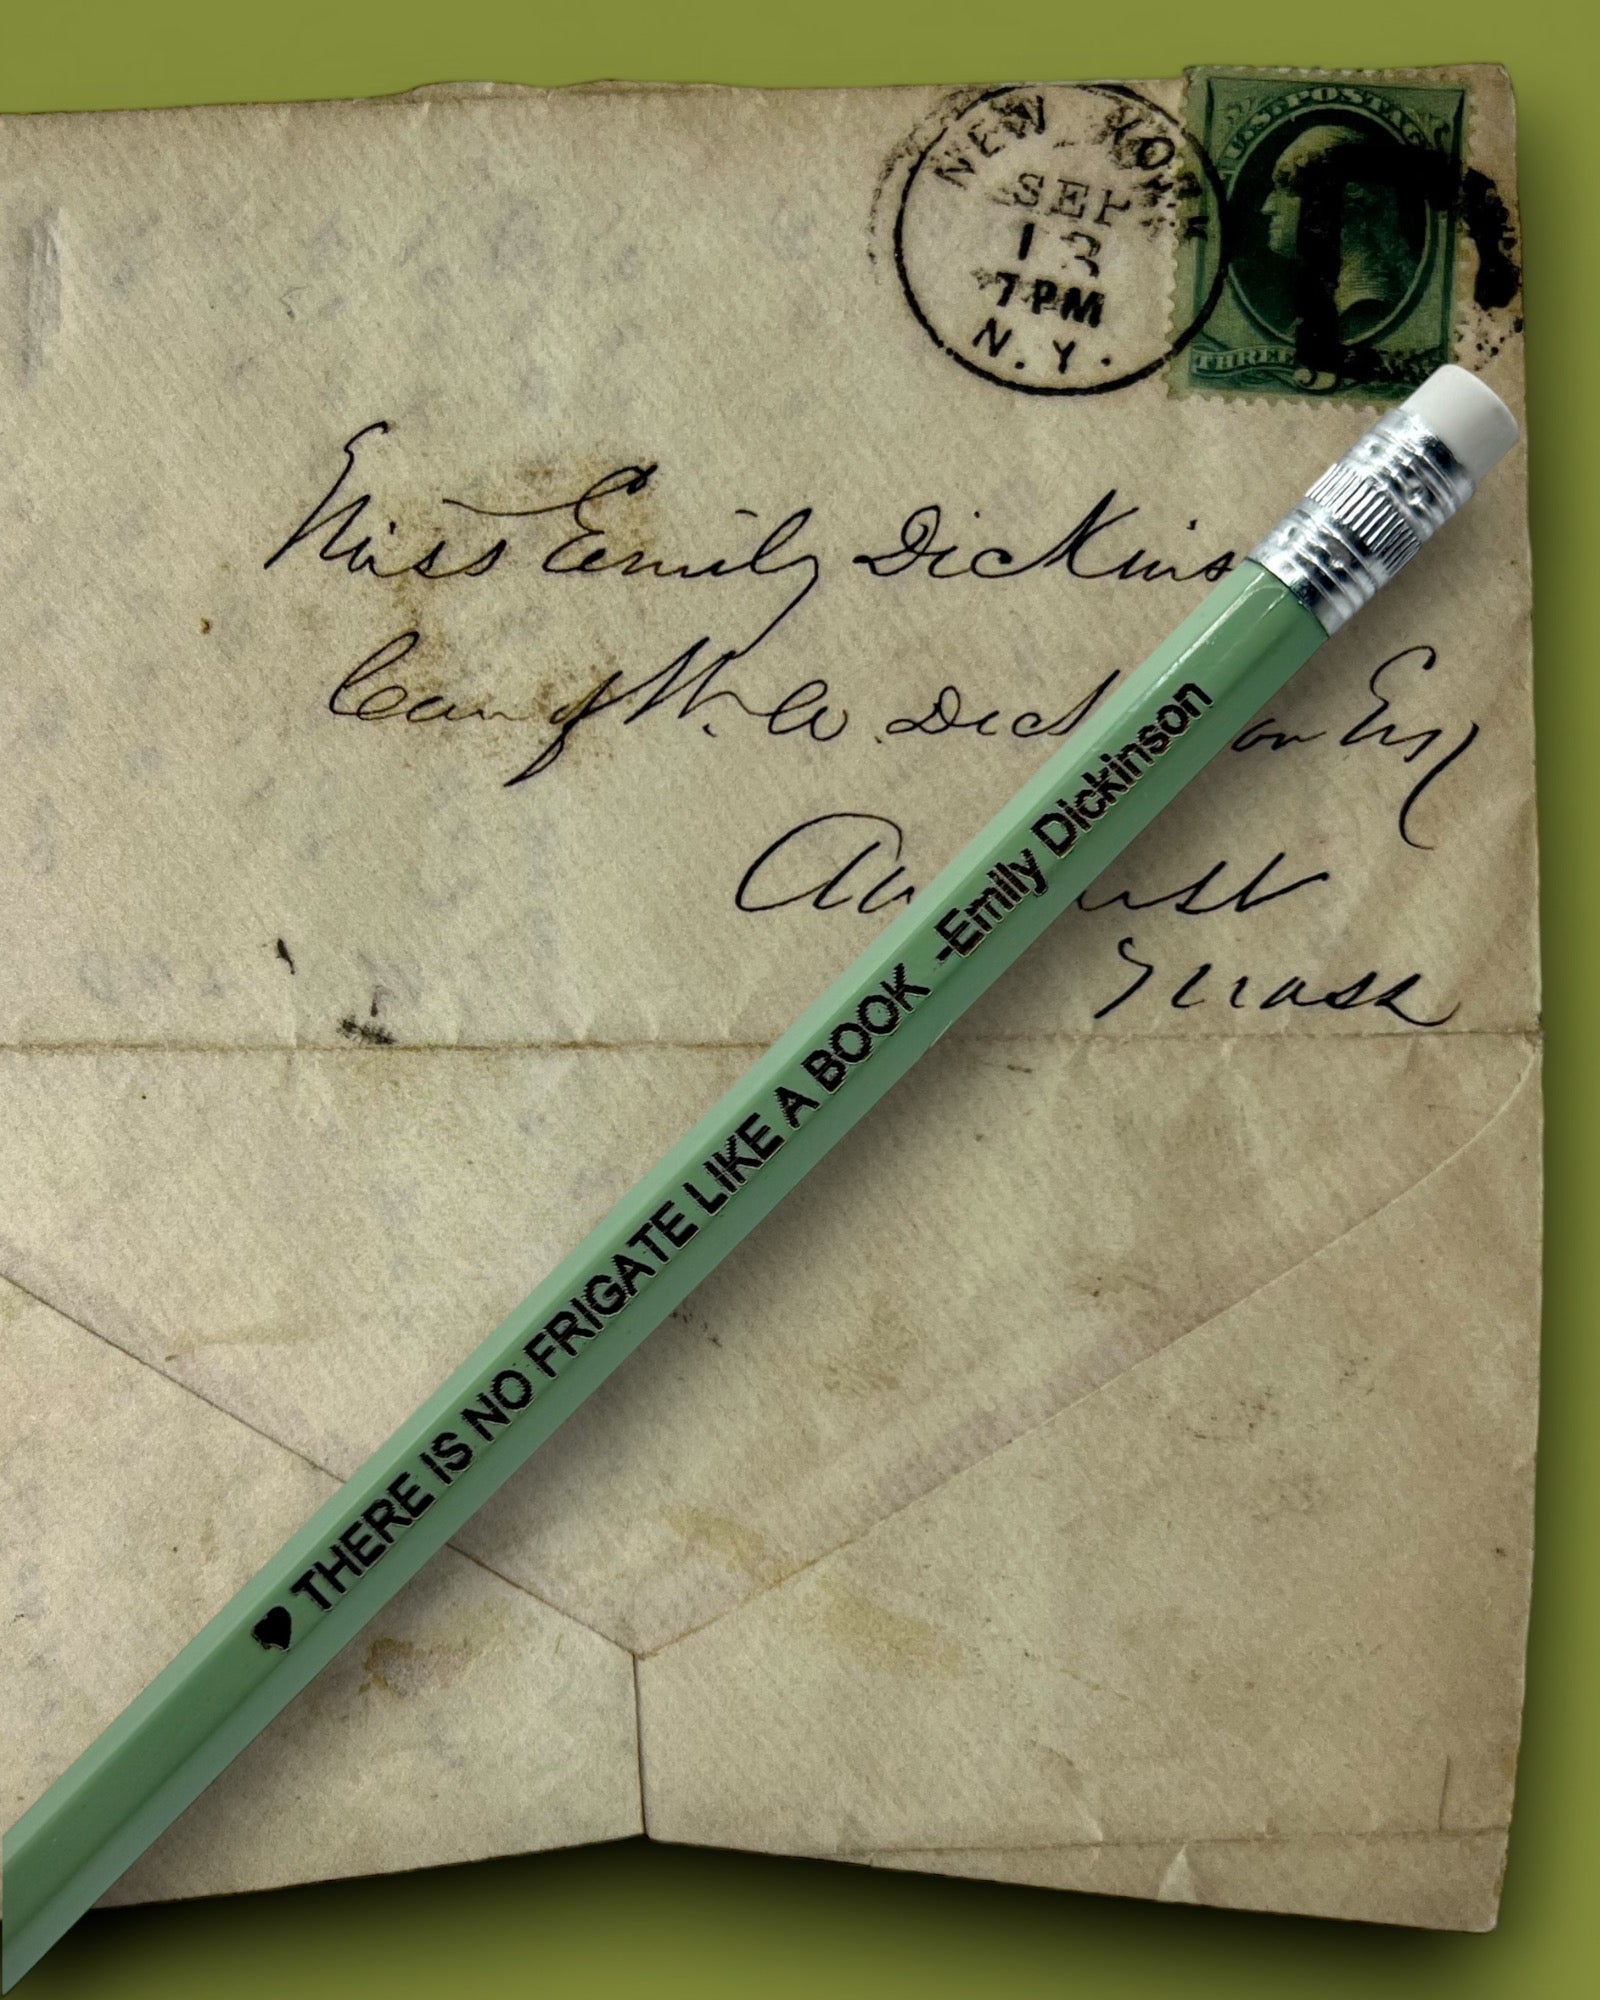 NEW YORK
SEP
12
7PM
N.Y.
U.S. POSTAGE
THREE
Miss Emily Dickins
Care of W. A. Dick on Esq
Au ust
Mass
♥ THERE IS NO FRIGATE LIKE A BOOK -Emily Dickinson